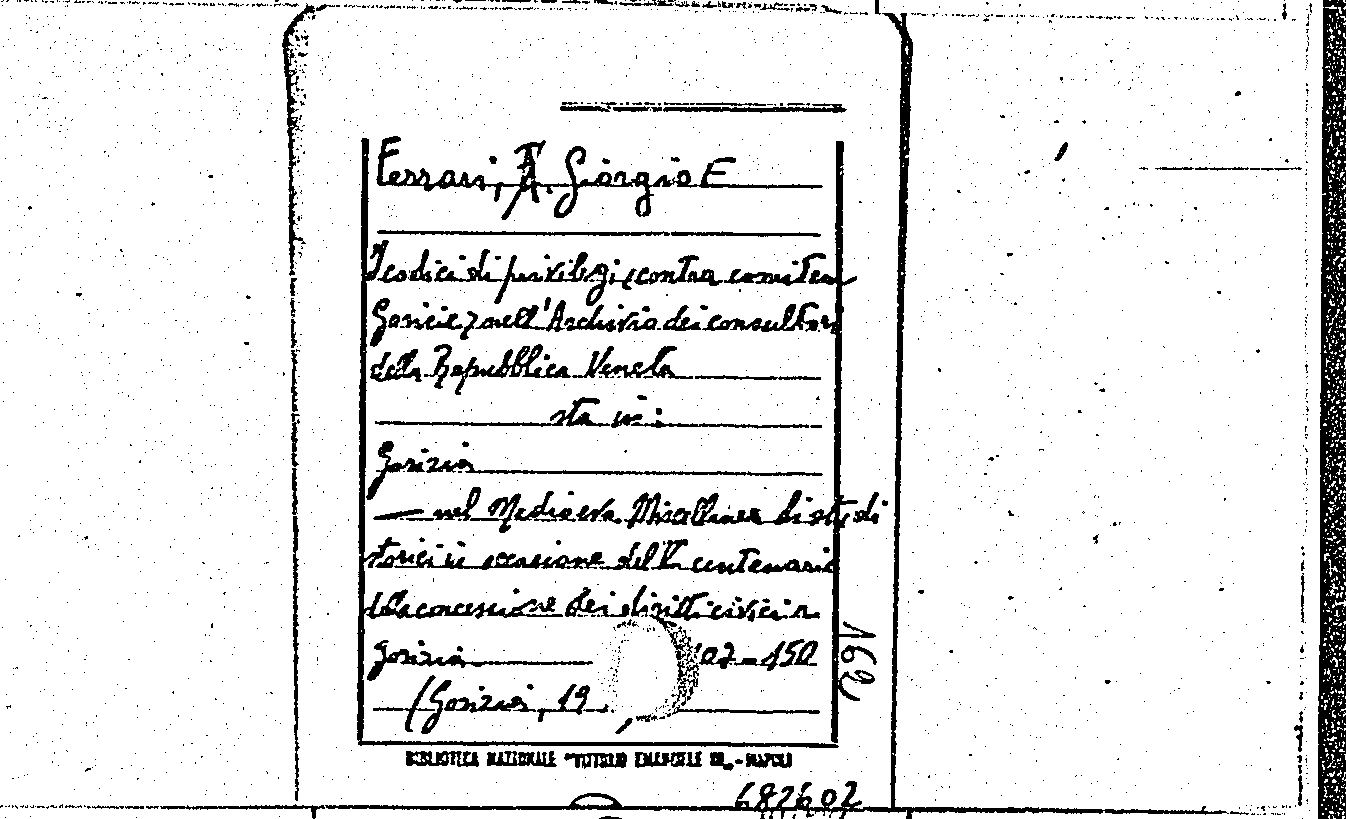 Ferrari, Giorgio E
I codici di privilegi "contra comitem
Goricie" nell'Archivio dei consultori
della Repubblica Veneta
sta in:
Gorizia
— nel Medioevo. Miscellanea di studi
storici in occasione del centenario
della concessione dei diritti civici a
Gorizia 07-150
(Gorizia, 19
BIBLIOTECA NAZIONALE "VITTORIO EMANUELE III" - NAPOLI
682602